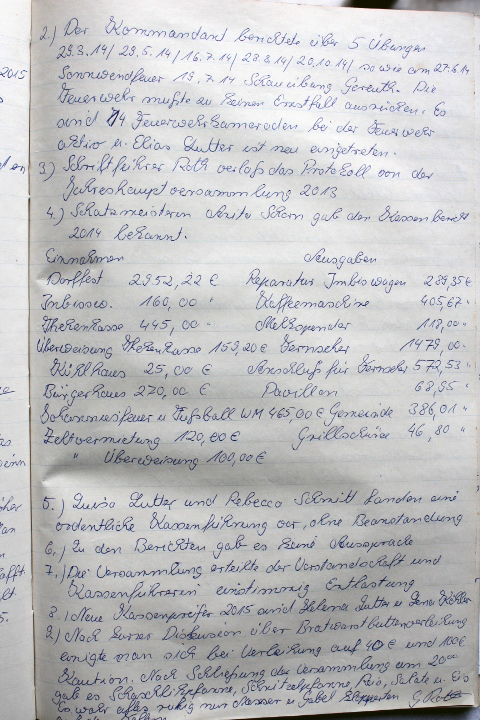 2.) Der Kommandant berichtete über 5 Übungen
29.3.14/ 29.5.14/ 16.7.14/ 28.8.14/ 20.10.14/ sowie am 27.6.14
2015
Sonnwendfeuer 19.7.14 Schauübung Gereuth. Die
Feuerwehr mußte zu keinen Ernstfall ausrücken. Es
sind 74 Feuerwehrkameraden bei der Feuerwehr
aktiv u. Elias Lutter ist neu eingetreten.
3) Schriftführer Roth verlaß das Protokoll von der
Jahreshauptversammlung 2013
4.) Schatzmeisterin Anita Schorn gab den Kassenbericht
2014 bekannt.
Einnahmen Ausgaben
Dorffest 2952,22 € Reparatur Imbiswagen 289,35 €
Imbissw. 160,00 " Kaffemaschine 405,67 "
Thekenkasse 445,00 " Melkspender 118,00 "
Überweisung Thekenkasse 159,20 € Fernseher 1479,00 "
Kühlhaus 25,00 € Anschluß für Fernseher 572,53 "
Bürgerhaus 270,00 € Pavillon 68,95 "
Johannisfeuer u Fußball WM 465,00 € Gemeinde 386,01 "
Zeltvermietung 120,00 € Grillschürze 46,80 "
" Überweisung 100,00 €
5.) Luisa Lutter und Rebecca Schmitt fanden eine
ordentliche Kassenführung vor, ohne Beanstandung
6.) Zu den Berichten gab es keine Aussprache
7.) Die Versammlung erteilte der Vorstandschaft und
Kassenführerin einstimmig Entlastung
8.) Neue Kassenprüfer 2015 sind Helena Lutter u Lena Köhler
9.) Nach kurzer Diskussion über Bratwurstbudenverleihung
einigte man sich bei Verleihung auf 40 € und 100 €
Kaution. Nach Schließung der Versammlung um 20⁰⁰
gab es Schaschlikpfanne, Schnitzelpfanne, Reis, Salate u. Eis
Es wahr alles ruhig nur Messer u Gabel klapperten G. Roth